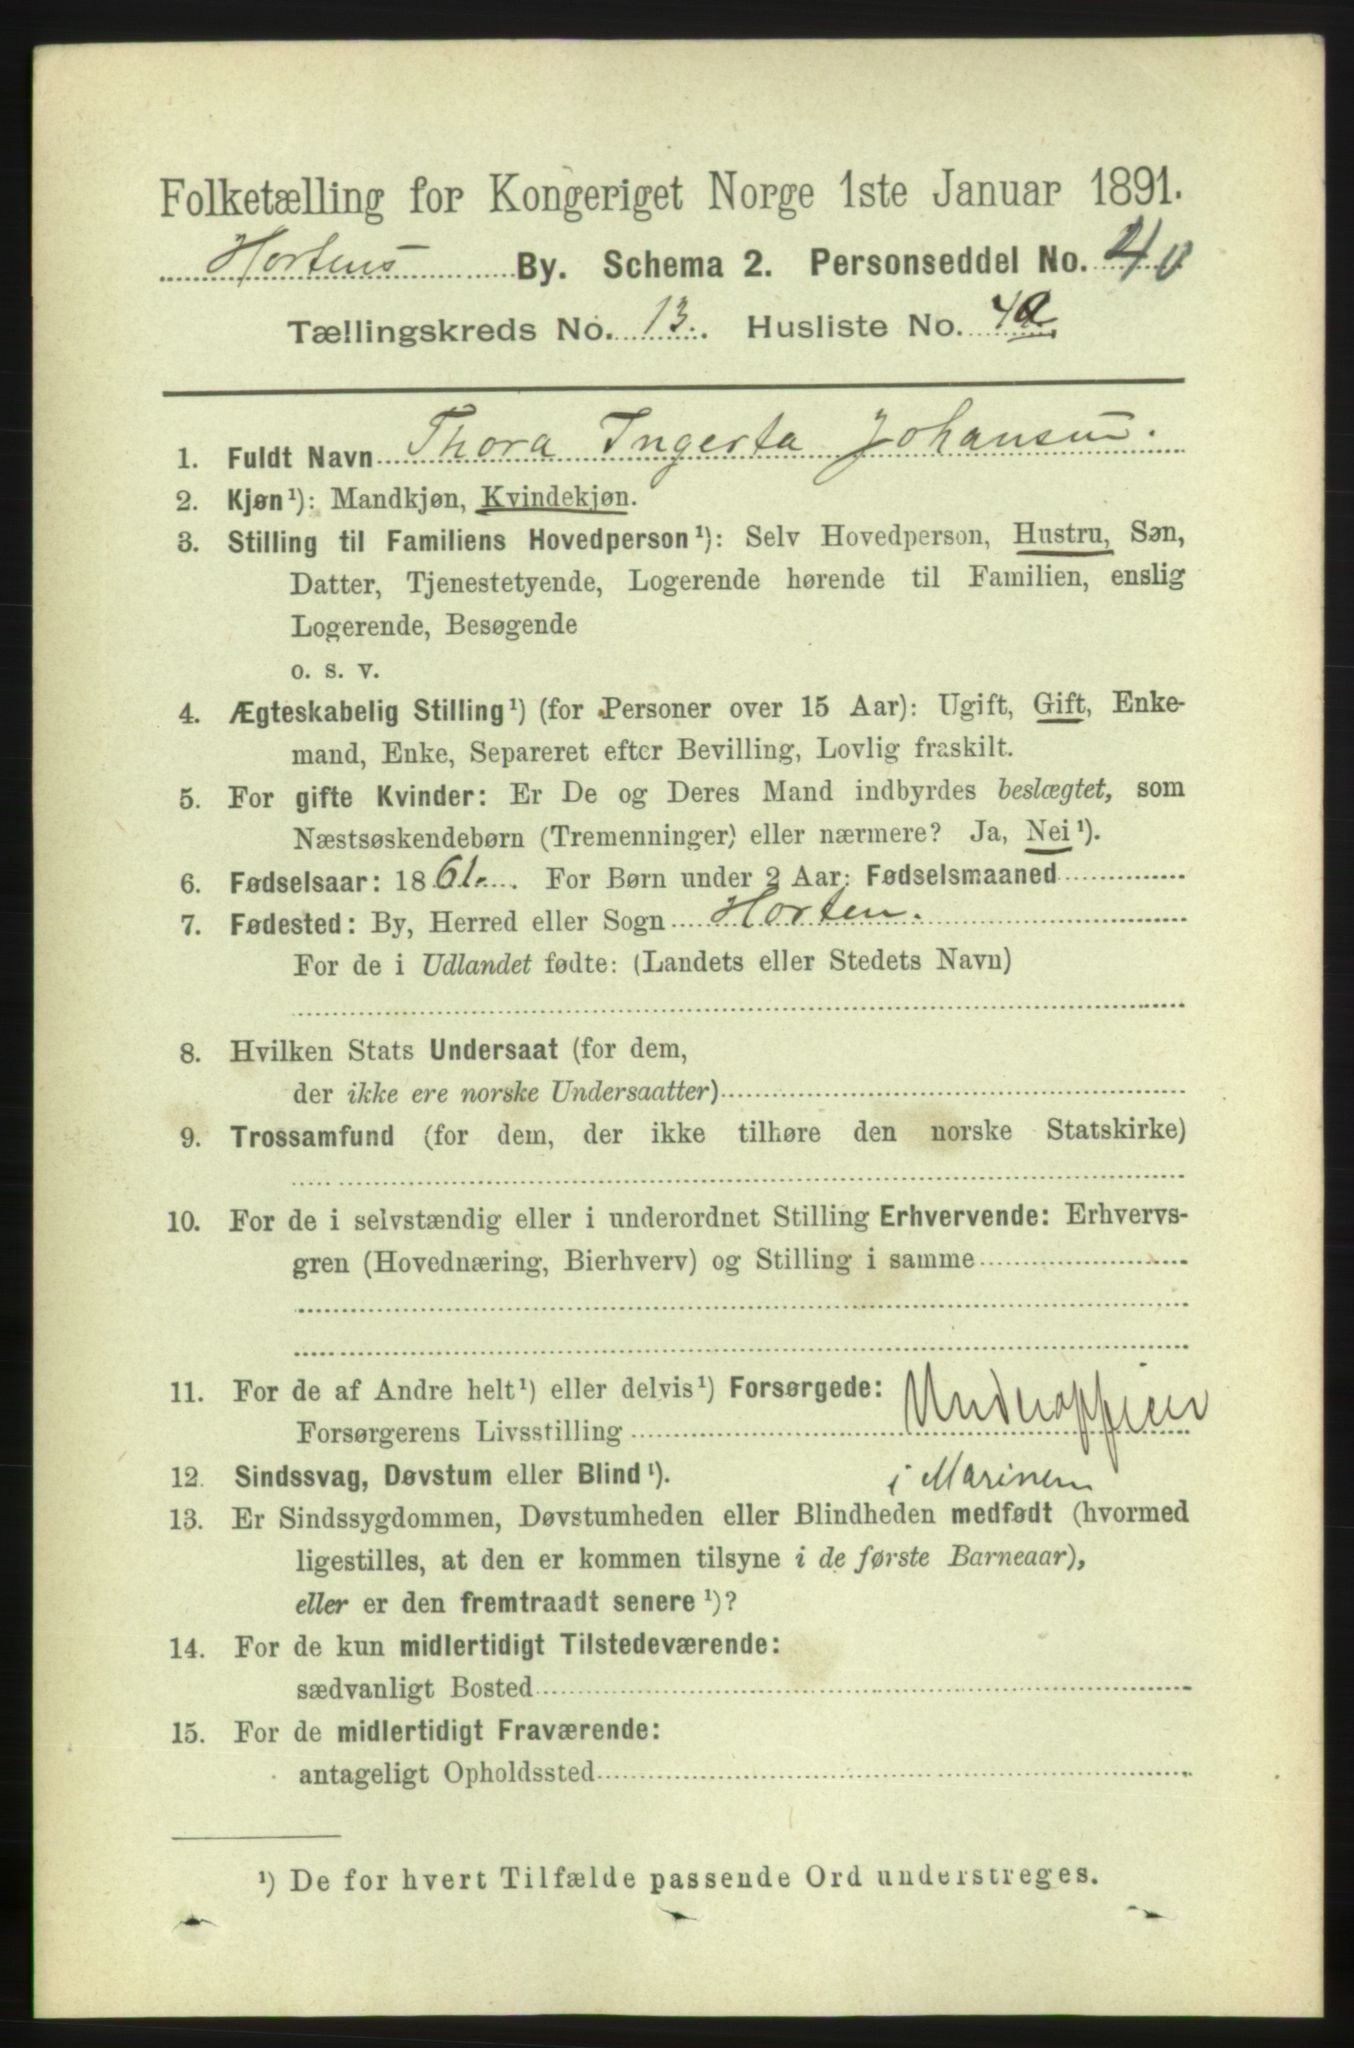 Folketælling for Kongeriget Norge 1ste Januar 1891.
Hortens By. Schema 2. Personseddel No. 40
Tællingskreds No. 13. Husliste No. 4a
1. Fuldt Navn Thora Ingerta Johansen.
2. Kjøn¹): Mandkjøn, Kvindekjøn.
3. Stilling til Familiens Hovedperson¹): Selv Hovedperson, Hustru, Søn,
Datter, Tjenestetyende, Logerende hørende til Familien, enslig
Logerende, Besøgende
o. s. v.
4. Ægteskabelig Stilling¹) (for Personer over 15 Aar): Ugift, Gift, Enke-
mand, Enke, Separeret efter Bevilling, Lovlig fraskilt.
5. For gifte Kvinder: Er De og Deres Mand indbyrdes beslægtet, som
Næstsøskendebørn (Tremenninger) eller nærmere? Ja, Nei¹).
6. Fødselsaar: 1861. For Børn under 2 Aar: Fødselsmaaned
7. Fødested: By, Herred eller Sogn Horten.
For de i Udlandet fødte: (Landets eller Stedets Navn)
8. Hvilken Stats Undersaat (for dem,
der ikke ere norske Undersaatter)
9. Trossamfund (for dem, der ikke tilhøre den norske Statskirke)
10. For de i selvstændig eller i underordnet Stilling Erhvervende: Erhvervs-
gren (Hovednæring, Bierhverv) og Stilling i samme
11. For de af Andre helt¹) eller delvis¹) Forsørgede:
Forsørgerens Livsstilling Underofficer
12. Sindssvag, Døvstum eller Blind¹). i Marinen
13. Er Sindssygdommen, Døvstumheden eller Blindheden medfødt (hvormed
ligestilles, at den er kommen tilsyne i de første Barneaar),
eller er den fremtraadt senere¹)?
14. For de kun midlertidigt Tilstedeværende:
sædvanligt Bosted
15. For de midlertidigt Fraværende:
antageligt Opholdssted
¹) De for hvert Tilfælde passende Ord understreges.